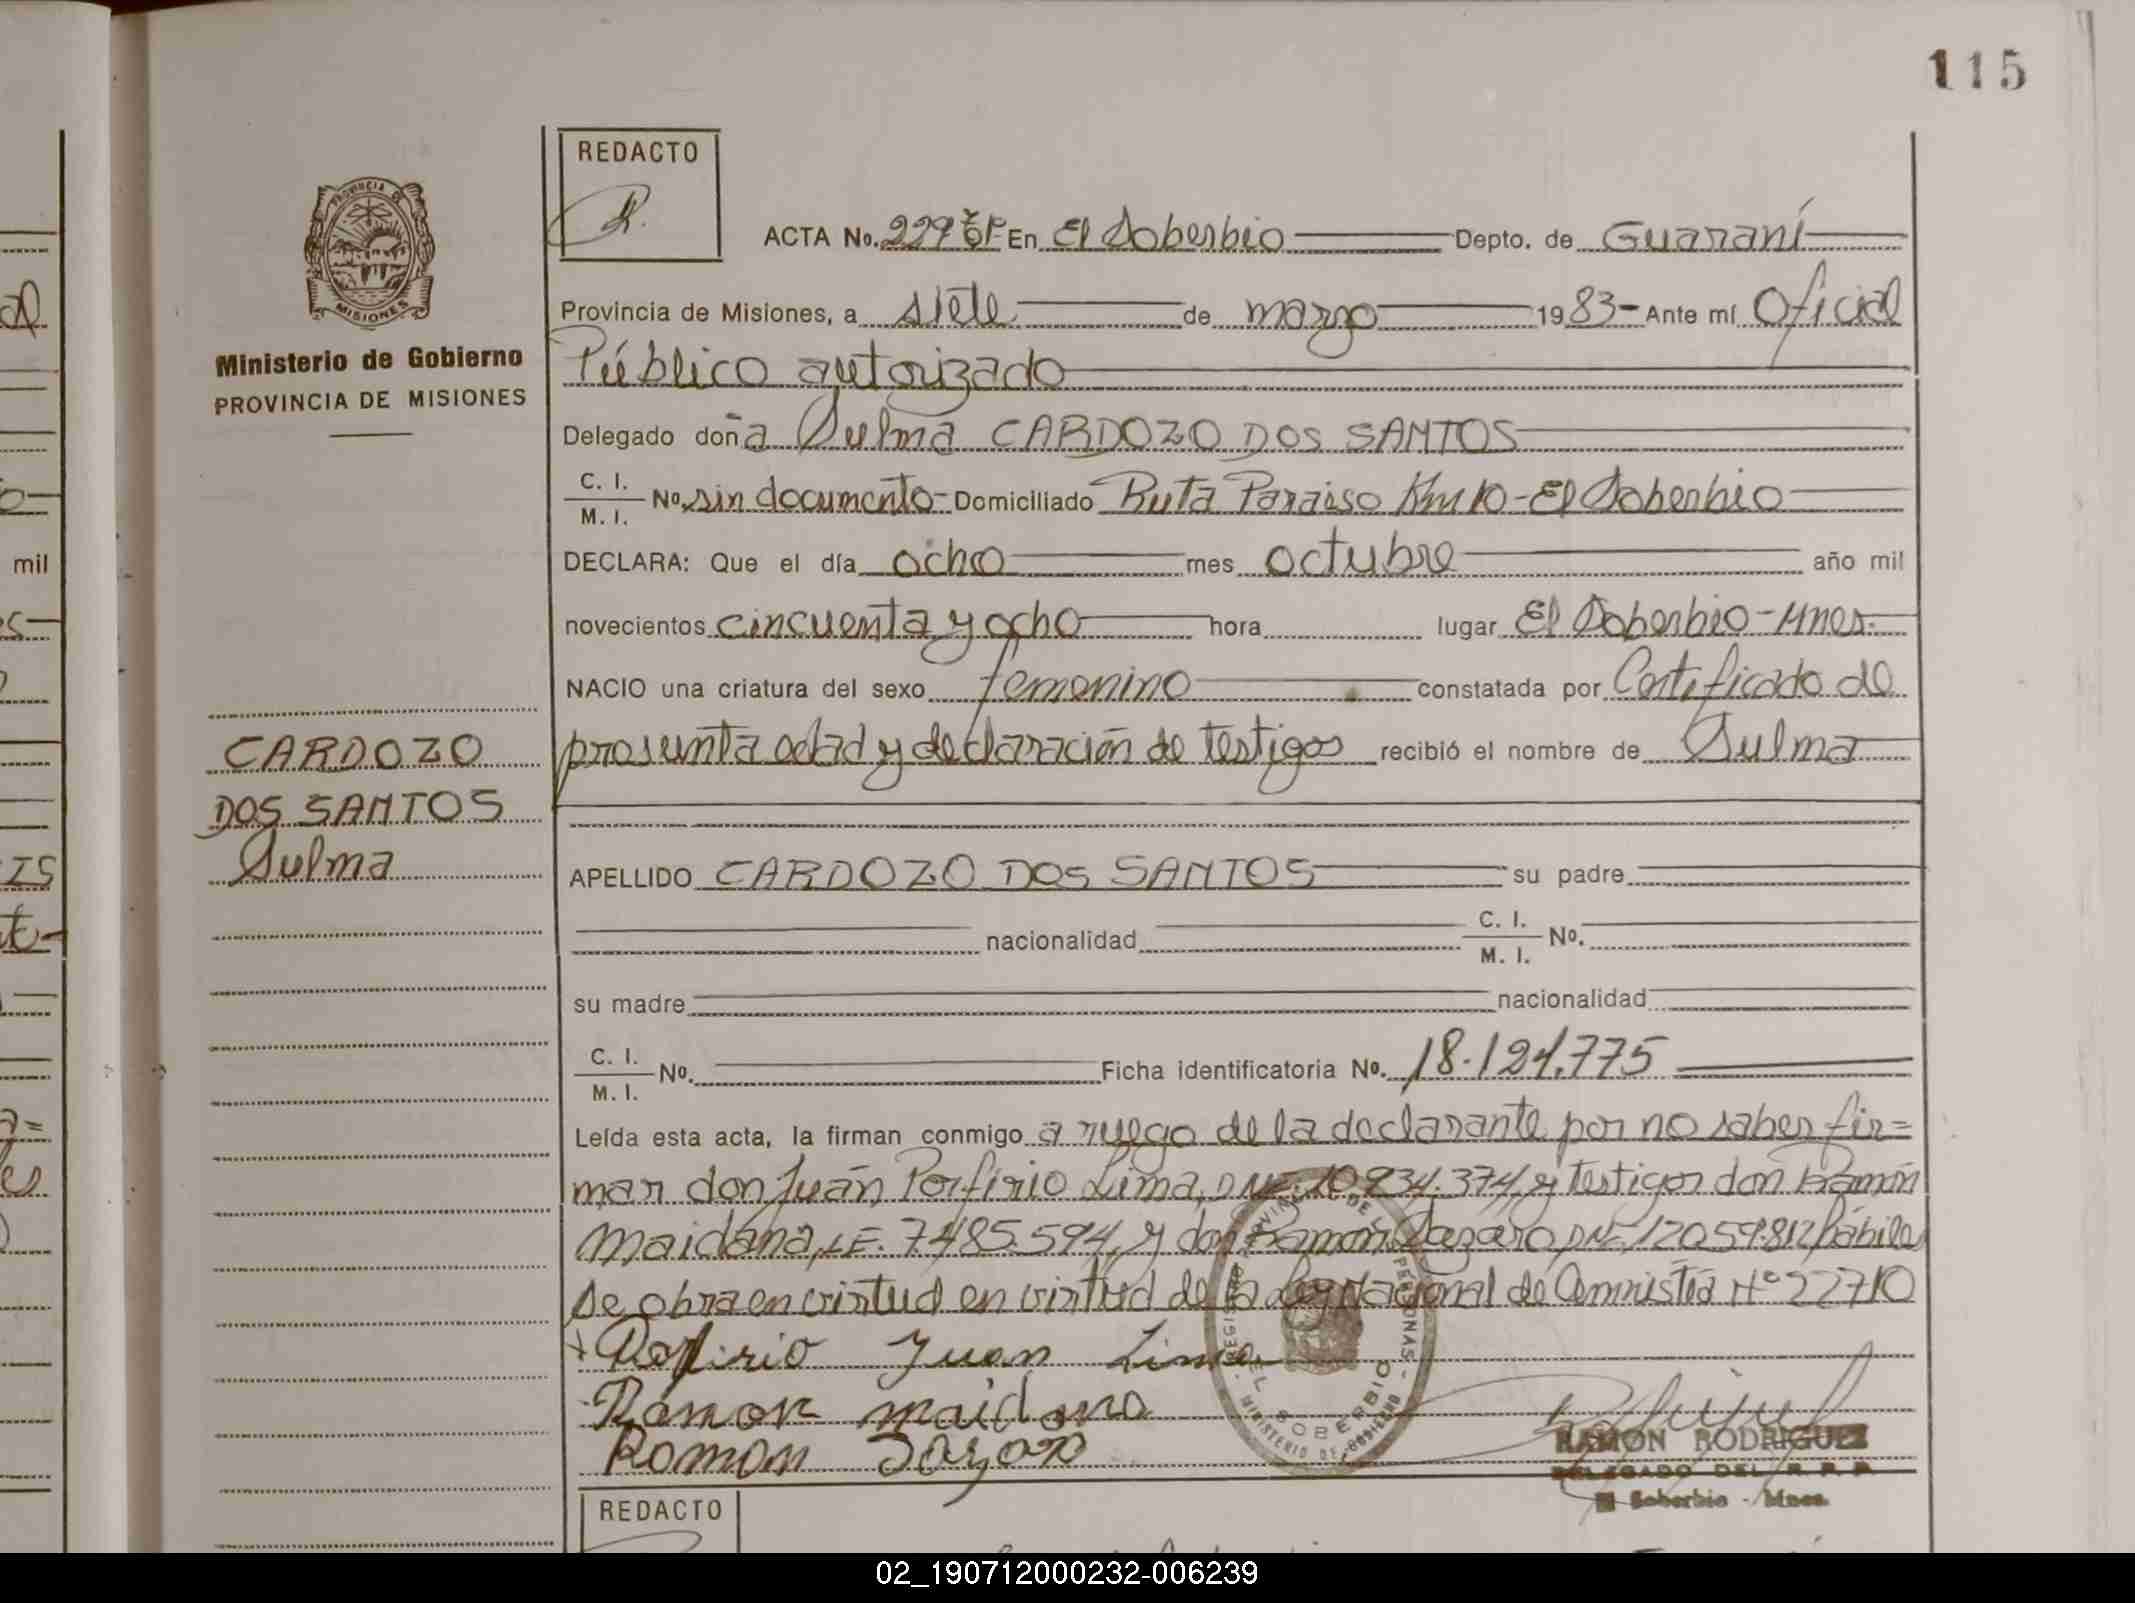 115
REDACTO
ACTA No. 229 En El Soberbio Depto. de Guaraní
Provincia de Misiones, a siete de marzo 1983- Ante mí Oficial
Ministerio de Gobierno
PROVINCIA DE MISIONES
Público autorizado
Delegado doña Sulma CARDOZO DOS SANTOS
C. I.
M. I.
No. sin documento- Domiciliado Ruta Paraiso Km 10-El Soberbio
DECLARA: Que el día ocho mes octubre año mil
novecientos cincuenta y ocho hora lugar El Soberbio-Mnes.
NACIO una criatura del sexo femenino constatada por Certificado de
presunta edad y declaración de testigos recibió el nombre de Sulma
CARDOZO
DOS SANTOS
Sulma
APELLIDO CARDOZO DOS SANTOS su padre
nacionalidad C. I. M. I. No.
su madre nacionalidad
C. I.
M. I.
No. Ficha identificatoria No. 18.124.775
Leída esta acta, la firman conmigo a ruego de la declarante por no saber fir=
mar don Juán Porfirio Lima, DNI. 10.934.374, y testigos don Ramón
Maidana, LE. 7.485.594, y don Ramón Lazaro, DNI. 12059.812 hábiles
se obra en virtud en virtud de la Ley Nacional de Amnistía N° 22710
Porfirio Juan Lima
Ramon maidana
Ramon
REGISTRO PROVINCIAL DE PERSONAS
EL SOBERBIO
MINISTERIO DE GOBIERNO
RAMON RODRIGUEZ
DELEGADO DEL R. P. P.
El Soberbio - Mnes.
REDACTO
mil
02_190712000232-006239